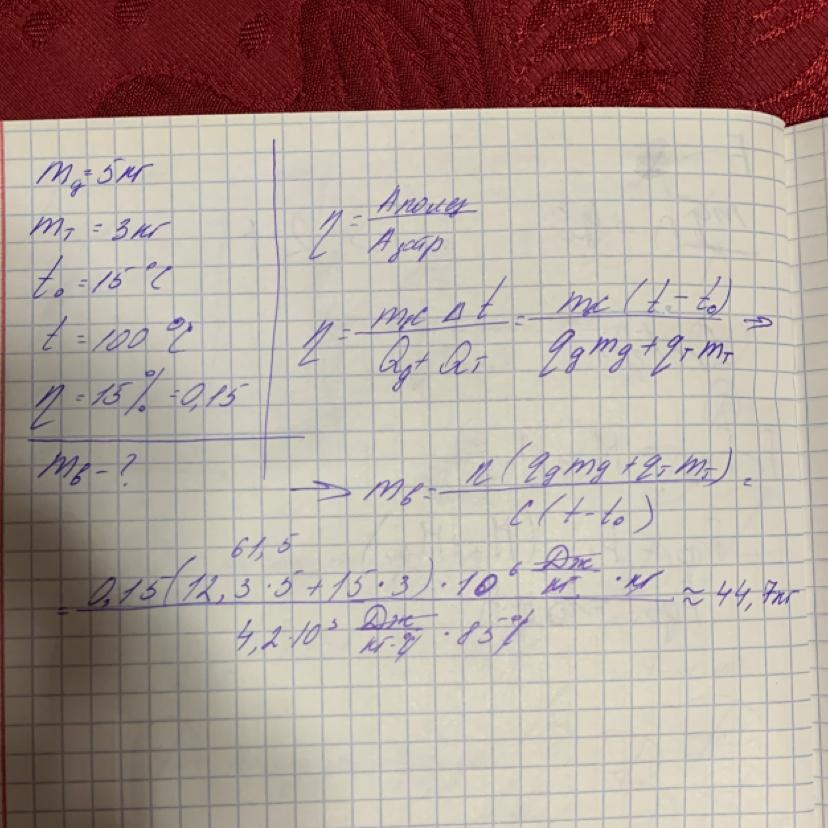 m_д = 5 кг
m_т = 3 кг
t_0 = 15 °C
t = 100 °C
η = 15% = 0,15
m_в - ?
η = A полез / A затр
η = mc Δt / Q_д + Q_т = mc (t - t_0) / q_д m_д + q_т m_т →
→ m_в = η (q_д m_д + q_т m_т) / c (t - t_0) =
61,5
= 0,15 (12,3 · 5 + 15 · 3) · 10^6 Дж/кг · кг / 4,2 · 10^3 Дж/кг·°C · 85 °C ≈ 44,7 кг